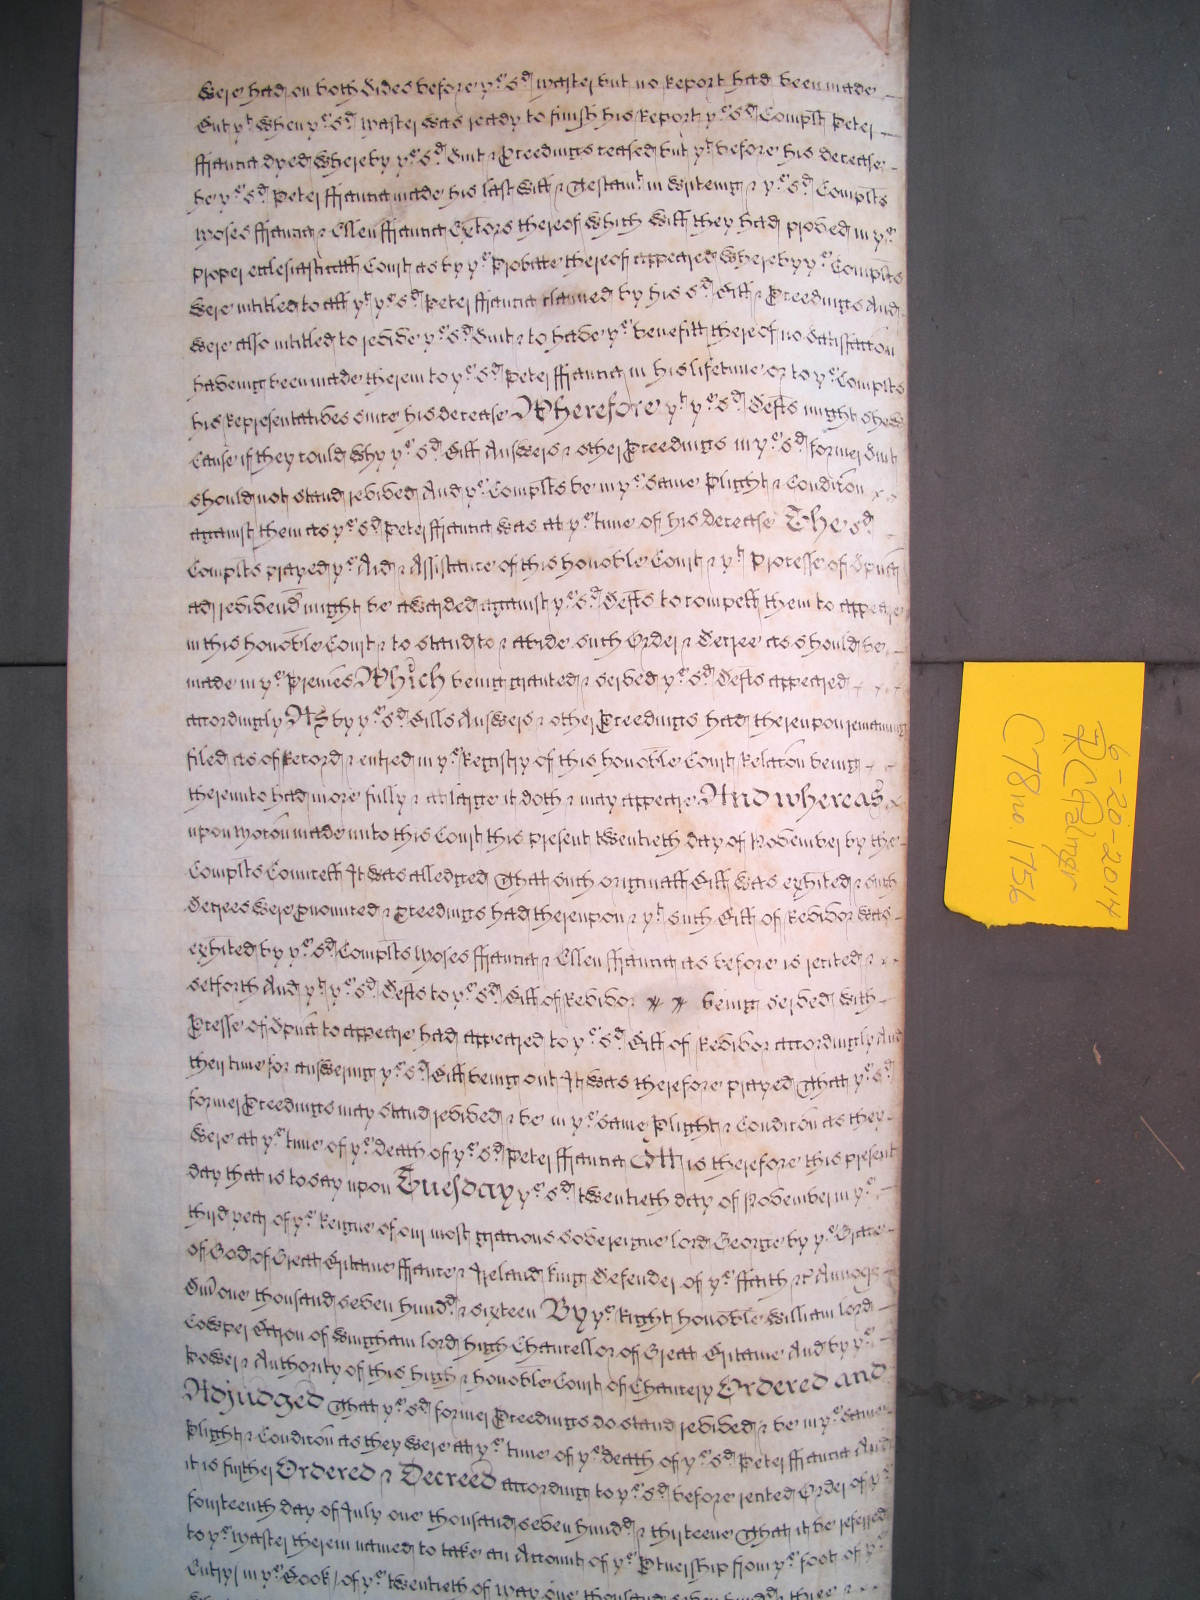 were had on both sides before yͤ sᵈ Master but no Report had been made
But yᵗ when yͤ sᵈ Master was ready to finish his Report yͤ sᵈ Complt Peter
ffrancia dyed whereby yͤ sᵈ Suit & Pceedings ceased but yᵗ before his decease
he yͤ sᵈ Peter ffrancia made his last Will & Testamᵗ in writeing & yͤ sᵈ Complts
Moses ffrancia & Ellen ffrancia Extors thereof which Will they had proved in yͤ
proper ecclesiasticall Court as by yͤ Probate thereof appeared whereby yͤ Complts
were intitled to all yᵗ yͤ sᵈ Peter ffrancia claimed by his sᵈ Bill & Pceedings And
were also intitled to revive yͤ sᵈ Suit & to have yͤ benefitt thereof no satisfaccon
haveing been made therein to yͤ sᵈ Peter ffrancia in his lifetime or to yͤ Complts
his Representatives since his decease Wherefore yᵗ yͤ sᵈ Defts might shew
Cause if they could why yͤ sᵈ Bill Answers & other Pceedings in yͤ sᵈ former Suit
should not stand revived And yͤ Complts be in yͤ same Plight & Condicon
against them as yͤ sᵈ Peter ffrancia was at yͤ time of his decease The sᵈ
Complts prayed yͤ Aid & Assistance of this honoble Court & yᵗ Processe of Spuena
ad revivend might be awarded against yͤ sᵈ Defts to compell them to appeare
in this honoble Court & to stand to & abide such Order & Decree as should be
made in yͤ Premes Which being granted & served yͤ sᵈ Defts appeared
accordingly As by yͤ sᵈ Bills Answers & other Pceedings had thereupon remaining
filed as of Record & entred in yͤ Registry of this honoble Court Relacon being
thereunto had more fully & at large it doth & may appeare And whereas
upon Mocon made unto this Court this present twentieth day of November by the
Complts Councell It was alledged That such originall Bill was exhited & such
Decrees were pnounced & pceedings had thereupon & yᵗ such Bill of Revivor was
exhited by yͤ sᵈ Complts Moses ffrancia & Ellen ffrancia as before is recited &
setforth And yᵗ yͤ sᵈ Defts to yͤ sᵈ Bill of Revivor being served with
Pcesse of Spua to appeare had appeared to yͤ sᵈ Bill of Revivor accordingly And
their time for answering yͤ sᵈ Bill being out It was therefore prayed That yͤ sᵈ
former Pceedings may stand revived & be in yͤ same Plight & Condicon as they
were at yͤ time of yͤ death of yͤ sᵈ Peter ffrancia It is therefore this present
day that is to say upon Tuesday yͤ sᵈ twentieth day of November in yͤ
third year of yͤ Reigne of our most gracious Sovereigne lord George by yͤ Grace
of God of Great Britaine ffrance & Ireland King Defender of yͤ ffaith &c Annoq
Dni one thousand seven hundᵈ & sixteen By yͤ Right honoble William lord
Cowper Baron of Wingham lord high Chancellor of Great Britaine And by yͤ
Power & Authority of this high & honoble Court of Chancery Ordered and
Adjudged That yͤ sᵈ former Pceedings do stand revived & be in yͤ same
Plight & Condicon as they were at yͤ time of yͤ death of yͤ sᵈ Peter ffrancia And
it is further Ordered & Decreed according to yͤ sᵈ before recited Order of yͤ
fourteenth day of July one thousand seven hundᵈ & thirteene That it be referred
to yͤ Master therein named to take an Account of yͤ Ptnership from yͤ foot of yͤ
Entry in yͤ Book of yͤ twentieth of May one thousand seven hundᵈ & three &
6-20-2014
RCPalmer
C78 no. 1756